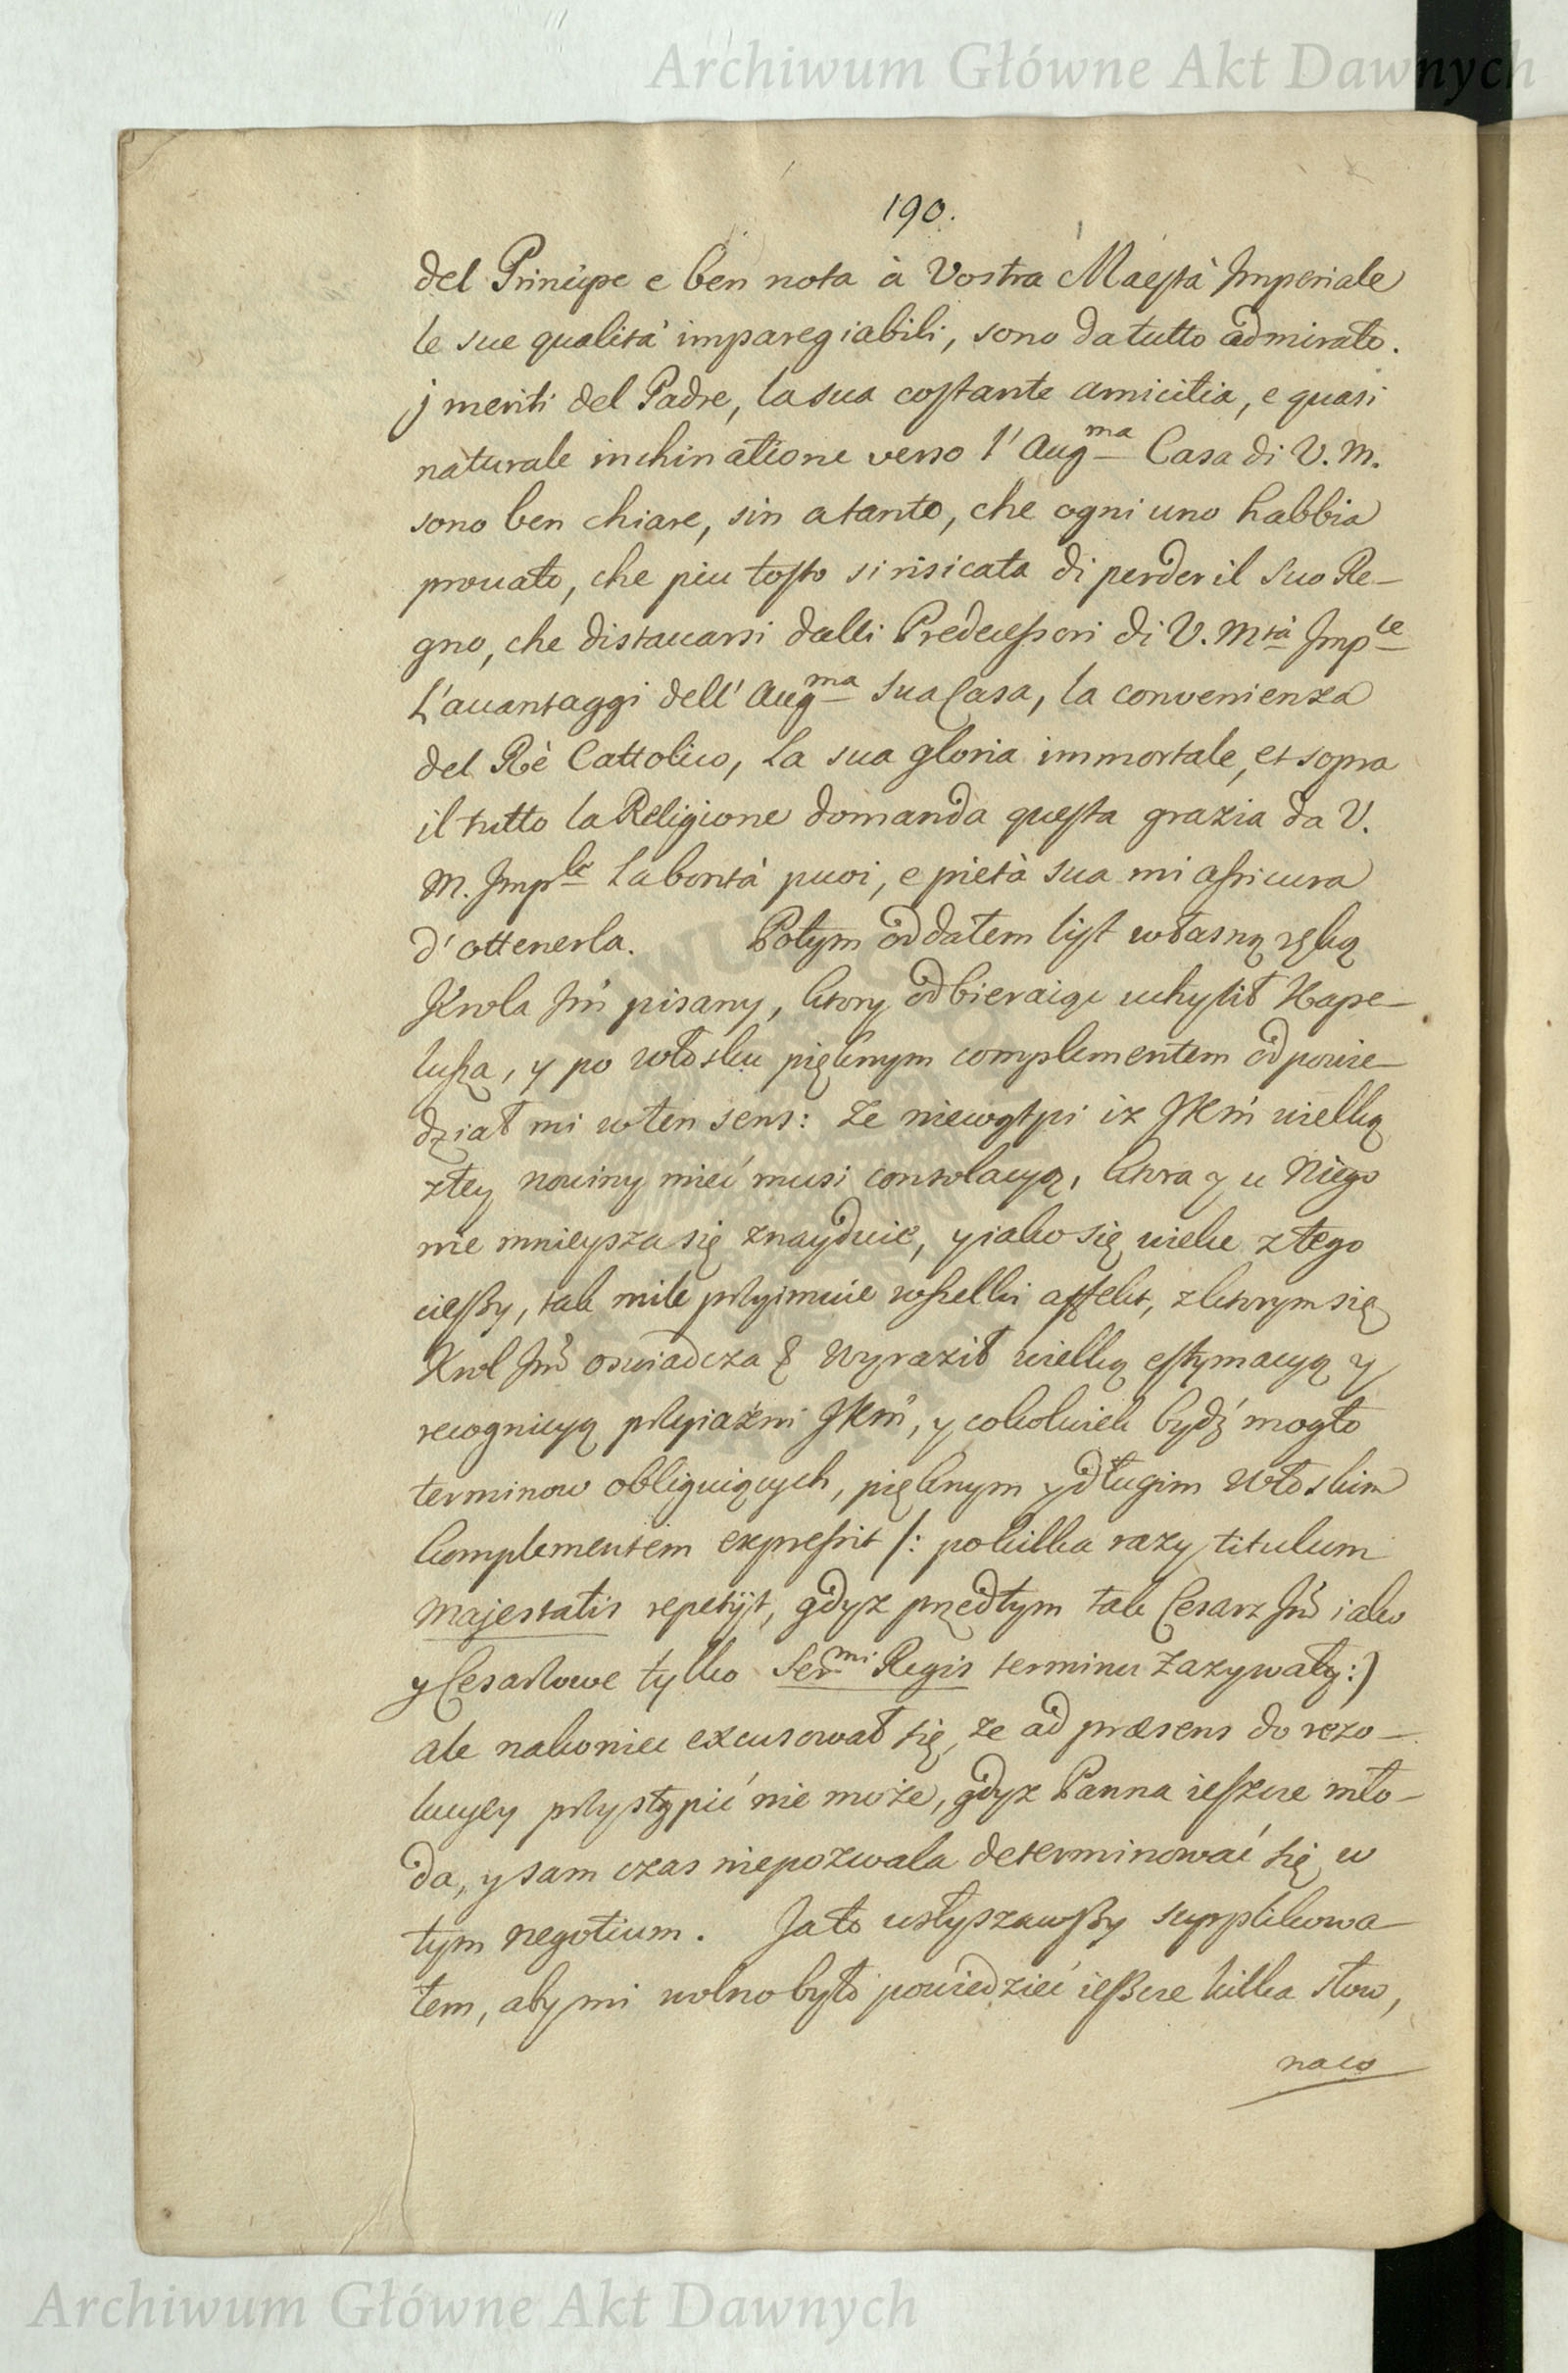 Archiwum Główne Akt Dawnych
190.
del Principe e ben nota à Vostra Maestà Imperiale
le sue qualità imparegiabili, sono da tutto admirato.
j meriti del Padre, la sua costante amicitia, e quasi
naturale inchinatione verso l'Aug.ma Casa di V. M.
sono ben chiare, sin a tanto, che ogni uno habbia
prouato, che piu tosto si risicata di perder il suo Re-
gno, che distaccarsi dalli Predecessori di V. Mtà Imp.le
L'auantaggi dell' Aug.ma Sua Casa, la convenienza
del Rè Cattolico, La sua gloria immortale, et sopra
il tutto la Religione domanda questa grazia da V.
M. Imp.le La bontà puoi, e pietà sua mi assicura
d'ottenerla. Potym oddałem list własną ręką
Krola Jm̃ pisany, ktory odbieraiąc uchylił Kape-
lusza, y po włosku pięknym complementem odpowie-
dział mi w ten sens: Ze niewątpi iz JKm̃ wielką
z tey nowiny mieć musi consolacyą, ktora y u Niego
nie mnieysza się znayduie, y iako się wielce z tego
cieszy, tak mile przyimuie wszelki affekt, z ktorym się
Krol Jm̃ oswiadcza & Wyraził wielką estymacyą y
recognicyą przyiaźni JKm̃, y cokolwiek bydź mogło
terminow obliguiących, pięknym y długim Włoskim
komplementem expressit /: po kilka razy titulum
Majestatis repetijt, gdyz przedtym tak Cesarz Jm̃ iako
y Cesarzowe tylko Ser.mi Regis terminu zazywały :/
ale nakoniec excusował się, ze ad præsens do rezo-
lucyey przystąpić nie może, gdyz Panna ieszcze mło-
da, y sam czas niepozwala determinować się w
tym negotium. Ja to usłyszawszy supplikowa-
łem, aby mi wolno było powiedzieć ieszcze kilka słow,
na co
Archiwum Główne Akt Dawnych